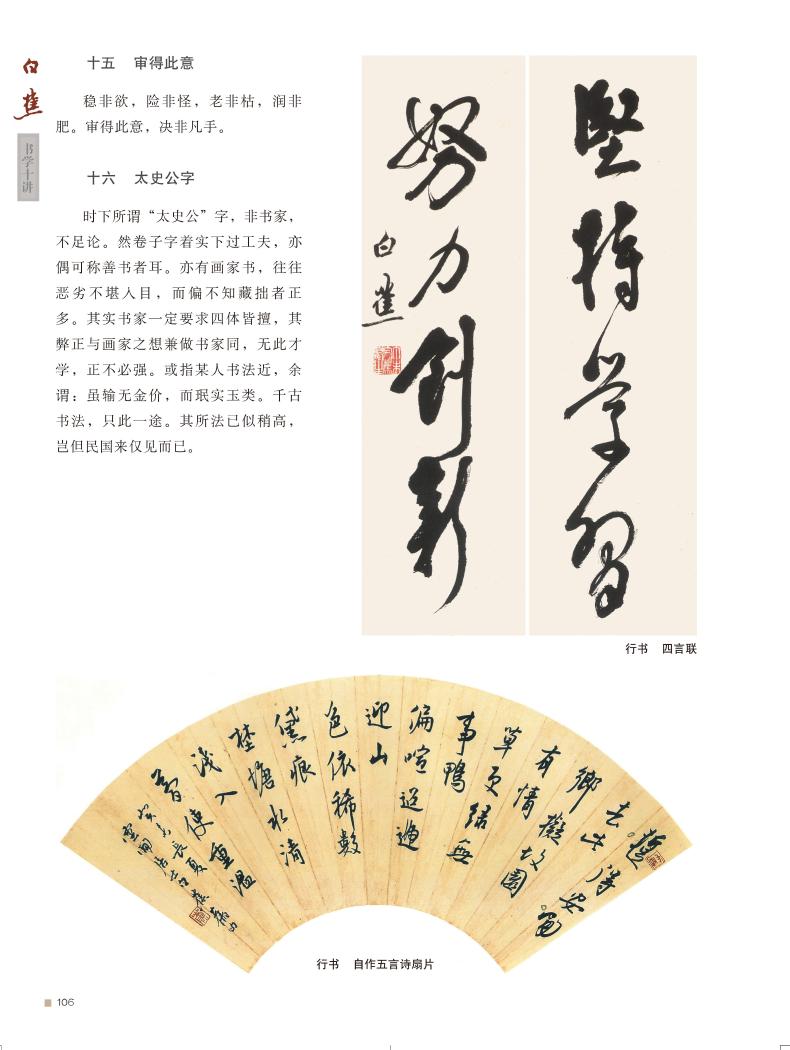 白蕉
书学十讲
十五 审得此意
稳非欲，险非怪，老非枯，润非
肥。审得此意，决非凡手。
十六 太史公字
时下所谓“太史公”字，非书家，
不足论。然卷子字着实下过工夫，亦
偶可称善书者耳。亦有画家书，往往
恶劣不堪人目，而偏不知藏拙者正
多。其实书家一定要求四体皆擅，其
弊正与画家之想兼做书家同，无此才
学，正不必强。或指某人书法近，余
谓：虽输无金价，而珉实玉类。千古
书法，只此一途。其所法已似稍高，
岂但民国来仅见而已。
堅持学習
努力創新
白蕉
行书 四言联
去
鄉
有情
草更绿無
事鴨
偏喧
迎山
色依稀數
黛痕
塘水清
淺入
使重温
行书 自作五言诗扇片
106